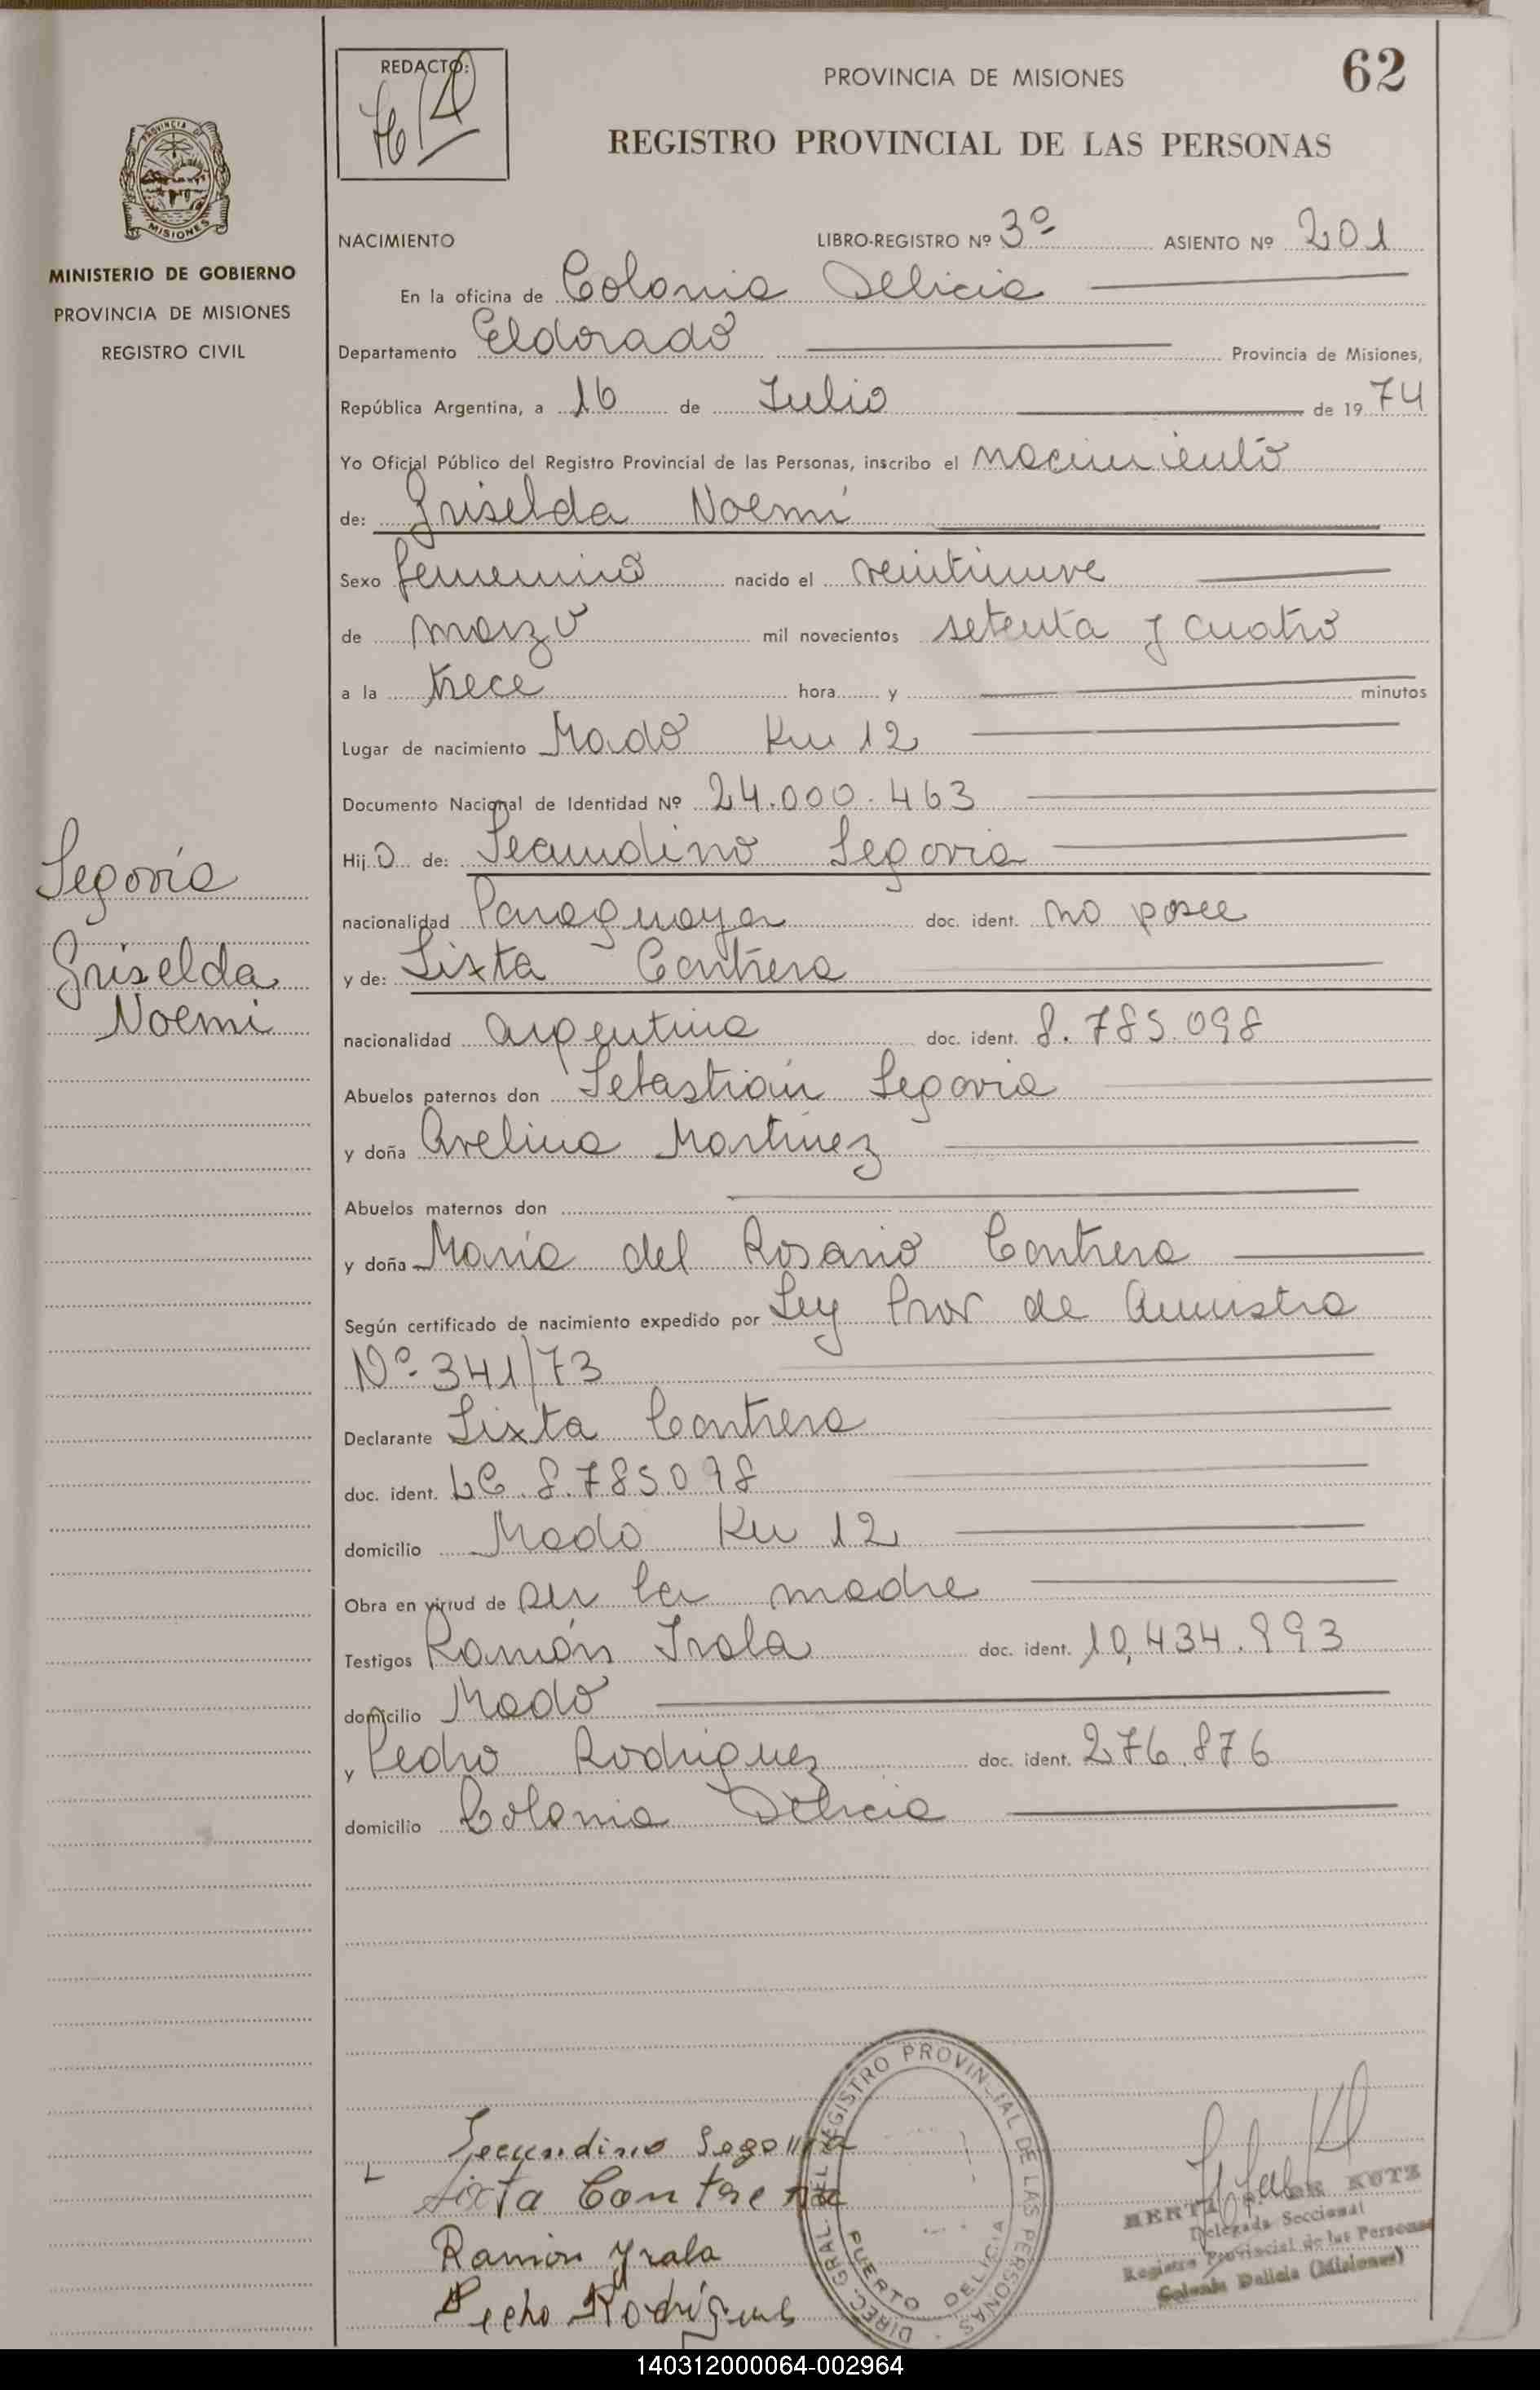 REDACTO:
PROVINCIA DE MISIONES
62
REGISTRO PROVINCIAL DE LAS PERSONAS
PROVINCIA DE
MISIONES
MINISTERIO DE GOBIERNO
PROVINCIA DE MISIONES
REGISTRO CIVIL
NACIMIENTO LIBRO-REGISTRO Nº 3º ASIENTO Nº 201
En la oficina de Colonia Delicia
Departamento Eldorado Provincia de Misiones,
República Argentina, a 16 de Julio de 1974
Yo Oficial Público del Registro Provincial de las Personas, inscribo el nacimiento
de: Griselda Noemí
Sexo femenino nacido el veintinueve
de marzo mil novecientos setenta y cuatro
a la trece hora y minutos
Lugar de nacimiento Mado Km 12
Documento Nacional de Identidad Nº 24.000.463
Hij a de: Secundino Segovia
nacionalidad Paraguaya doc. ident. no posee
y de: Sixta Contrera
nacionalidad argentina doc. ident. 8.785.098
Abuelos paternos don Sebastián Segovia
y doña Avelina Martinez
Abuelos maternos don
y doña María del Rosario Contrera
Según certificado de nacimiento expedido por Ley Prov de Amnistia
Nº 341/73
Declarante Sixta Contrera
doc. ident. LC 8.785098
domicilio Mado Km 12
Obra en virtud de ser la madre
Testigos Ramón Irala doc. ident. 10,434.993
domicilio Mado
y Pedro Rodriguez doc. ident. 276.876
domicilio Colonia Delicia
Segovia
Griselda
Noemi
Secundino Segovia
Sixta Contrera
Ramón Yrala
Pedro Rodrigues
DIREC. GRAL. DEL REGISTRO PROVINCIAL DE LAS PERSONAS
PUERTO DELICIA
KUTZ
Delegada Seccional
Registro Provincial de las Personas
Colonia Delicia (Misiones)
140312000064-002964